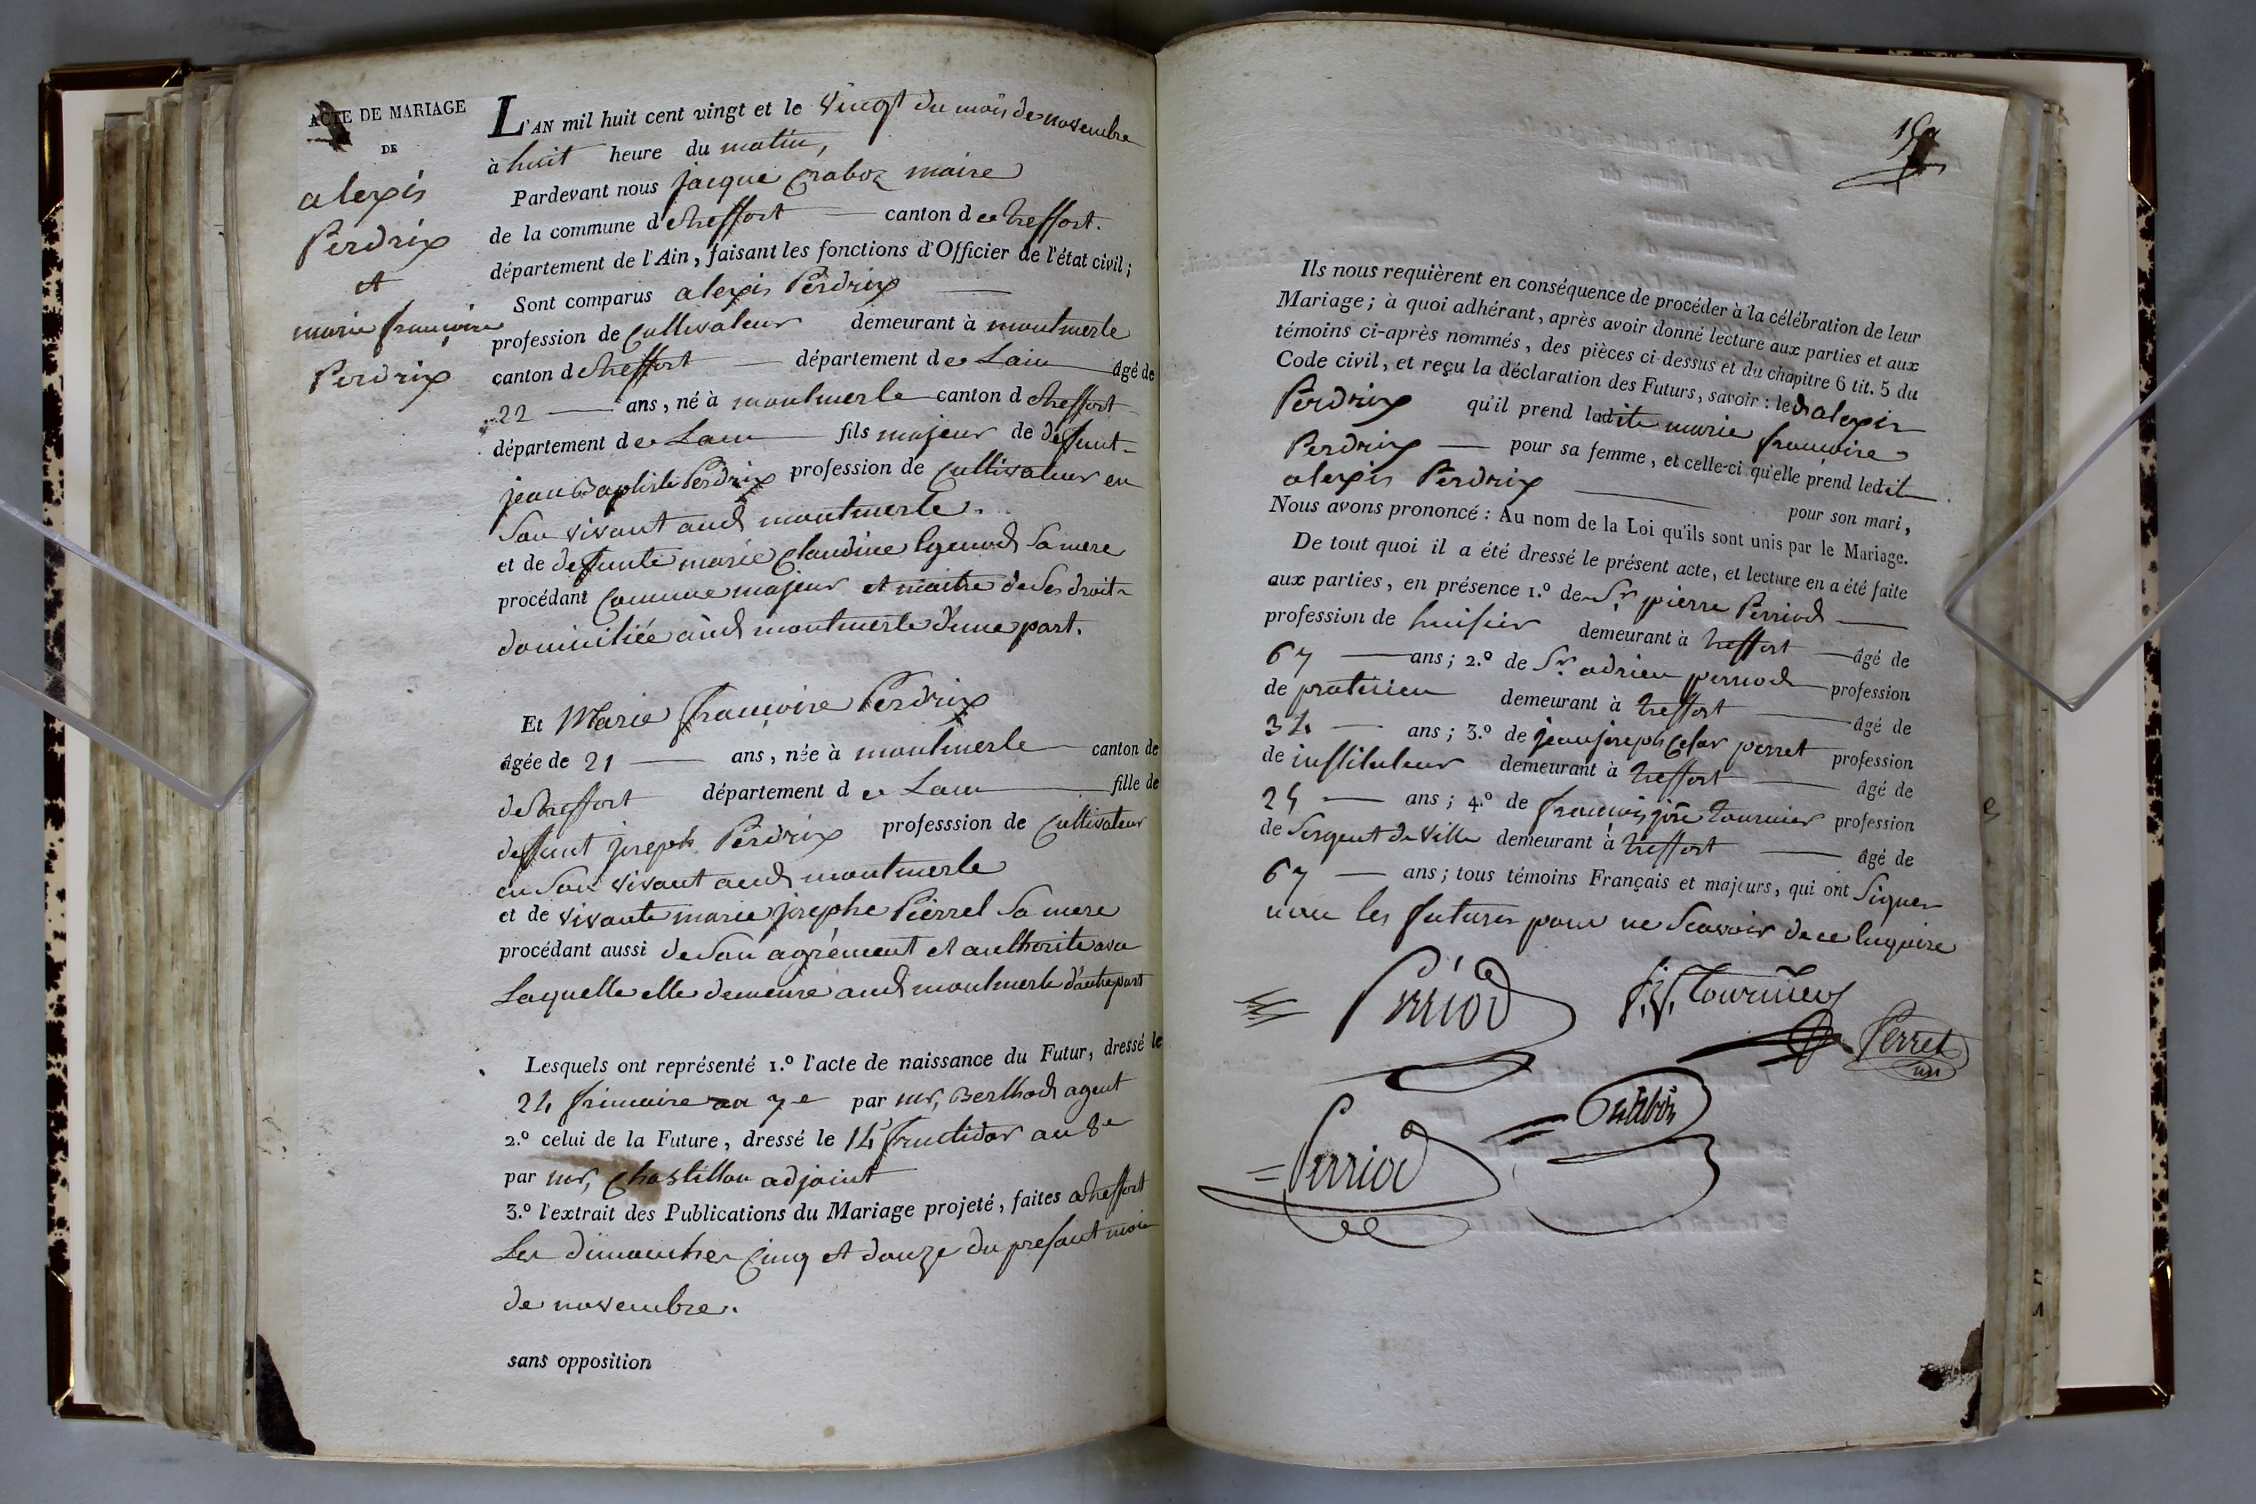 ACTE DE MARIAGE
DE
alexis
Perdrix
et
marie françoise
Perdrix
L'AN mil huit cent vingt et le vingt du mois de novembre
à huit heure du matin,
Pardevant nous jacque Craboz maire
de la commune d etreffort canton d e treffort.
département de l'Ain, faisant les fonctions d'Officier de l'état civil;
Sont comparus alexis Perdrix
profession de Cultivateur demeurant à montmerle
canton d etreffort département d e Lain âgé de
22 ans, né à montmerle canton d etreffort
département d e Lain fils majeur de deffunt
jean Baptiste Perdrix profession de Cultivateur en
Son vivant aud montmerle.
et de defunte marie Claudine Sa mere
procédant Comme majeur et maitre de Ses droit
domiciliée aud montmerle d'une part.
Et Marie françoise Perdrix
âgée de 21 ans, née à montmerle canton de
de treffort département d e Lain fille de
deffunt joseph Perdrix professsion de Cultivateur
en Son vivant aud montmerle
et de vivante marie josephe Pierrel Sa mere
procédant aussi de Son agrément et authorite avec
Laquelle elle demeure aud montmerle d'autre part
Lesquels ont représenté 1.º l'acte de naissance du Futur, dressé le
24 frimaire an 7e par mr, Berthod agent
2.º celui de la Future, dressé le 14 fructidor an 8e
par mr, Chastillon adjoint
3.º l'extrait des Publications du Mariage projeté, faites atreffort
Les dimanches Cinq et douze du present mois
de novembre.
sans opposition
Ils nous requièrent en conséquence de procéder à la célébration de leur
Mariage; à quoi adhérant, après avoir donné lecture aux parties et aux
témoins ci-après nommés, des pièces ci-dessus et du chapitre 6 tit. 5 du
Code civil, et reçu la déclaration des Futurs, savoir : led alexis
Perdrix qu'il prend ladite marie françoise
Perdrix pour sa femme, et celle-ci qu'elle prend ledit
alexis Perdrix pour son mari,
Nous avons prononcé : Au nom de la Loi qu'ils sont unis par le Mariage.
De tout quoi il a été dressé le présent acte, et lecture en a été faite
aux parties, en présence 1.º de Sr pierre Perriod
profession de huisier demeurant à treffort âgé de
67 ans; 2.º de Sr adrien perriod profession
de praticien demeurant à treffort âgé de
34 ans; 3.º de jean joseph Cesar perret profession
de instituteur demeurant à treffort âgé de
25 ans; 4.º de françois jph tournier profession
de Sergent de Ville demeurant à treffort âgé de
67 ans; tous témoins Français et majeurs, qui ont Signer
non les futurs pour ne Scavoir de ce enquire
Perriod
f. j. Tournier
Perret
Craboz
Perriod